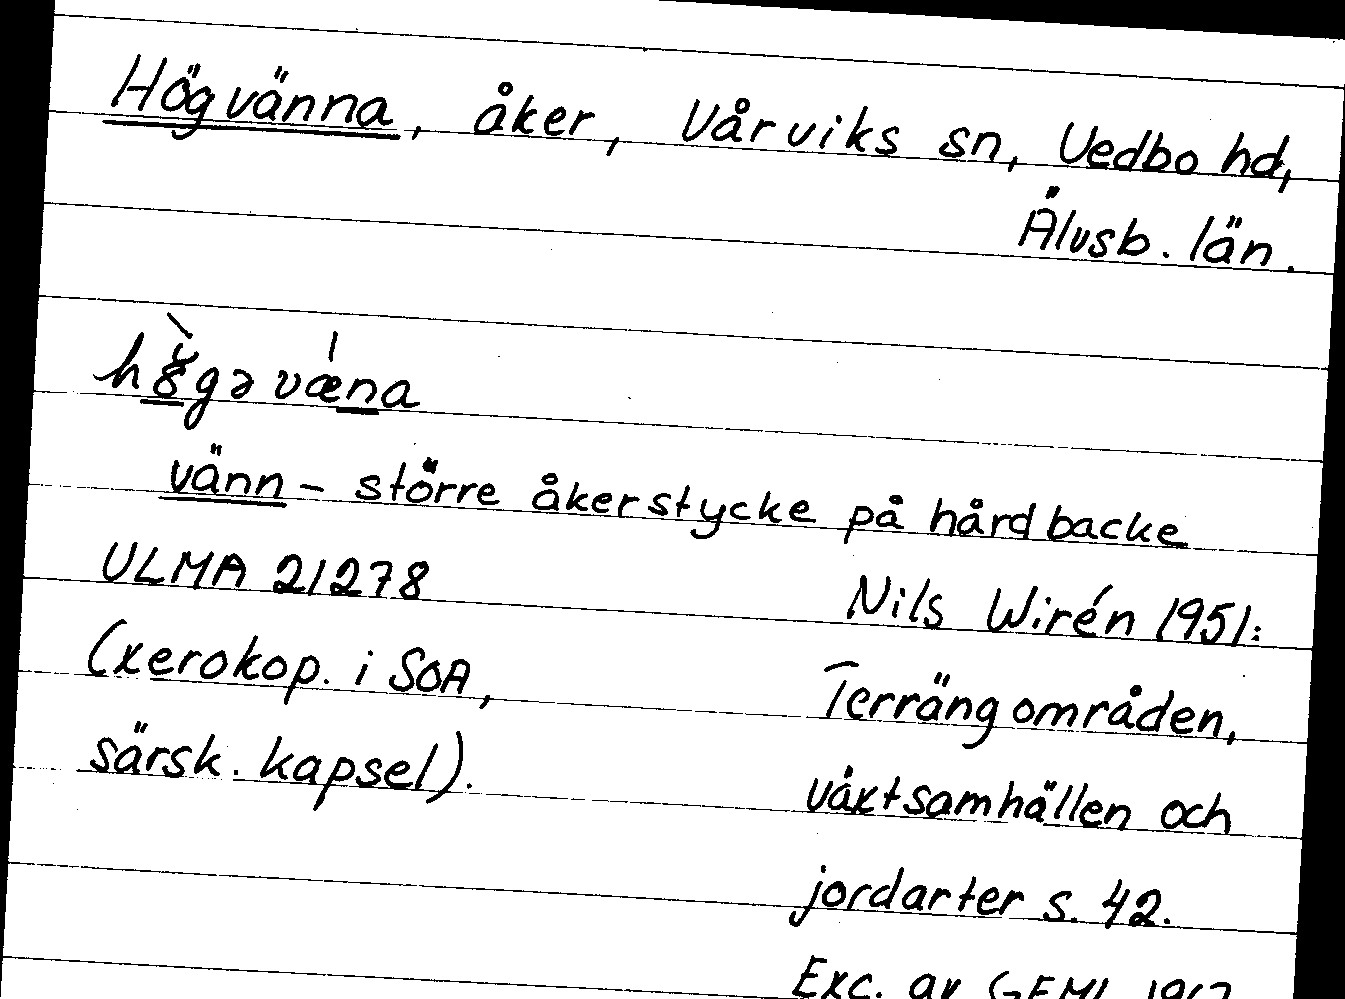 Högvänna, åker, Vårviks sn, Vedbo hd,
Älvsb. län.
vänn - större åkerstycke på hård backe
ULMA 21278 Nils Wirén 1951:
(xerokop. i SOA, Terrängområden,
särsk. kapsel). växtsamhällen och
jordarter s. 42.
Exc. av